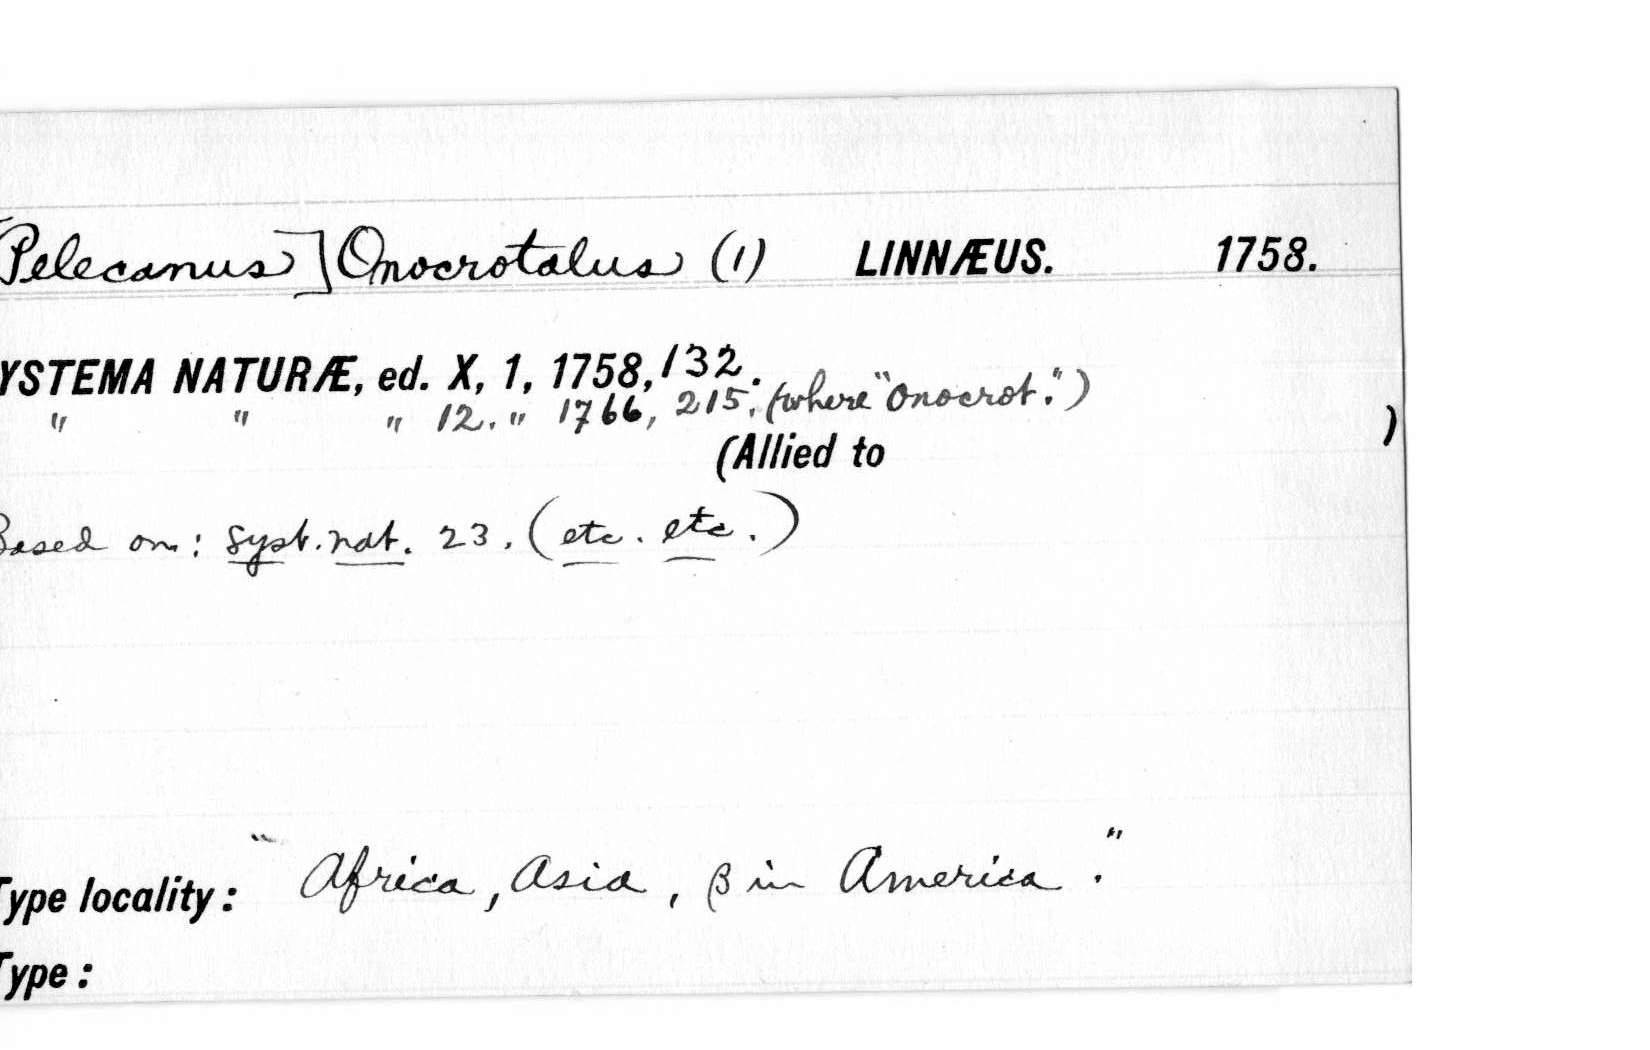 [Pelecanus] Onocrotalus (1) LINNÆUS. 1758.
YSTEMA NATURÆ, ed. X, 1, 1758, 132.
" " " 12. " 1766, 215. (where "Onocrot.")
(Allied to )
Based on: Syst. nat. 23. (etc. etc.)
Type locality: "Africa, Asia, β in America."
Type: